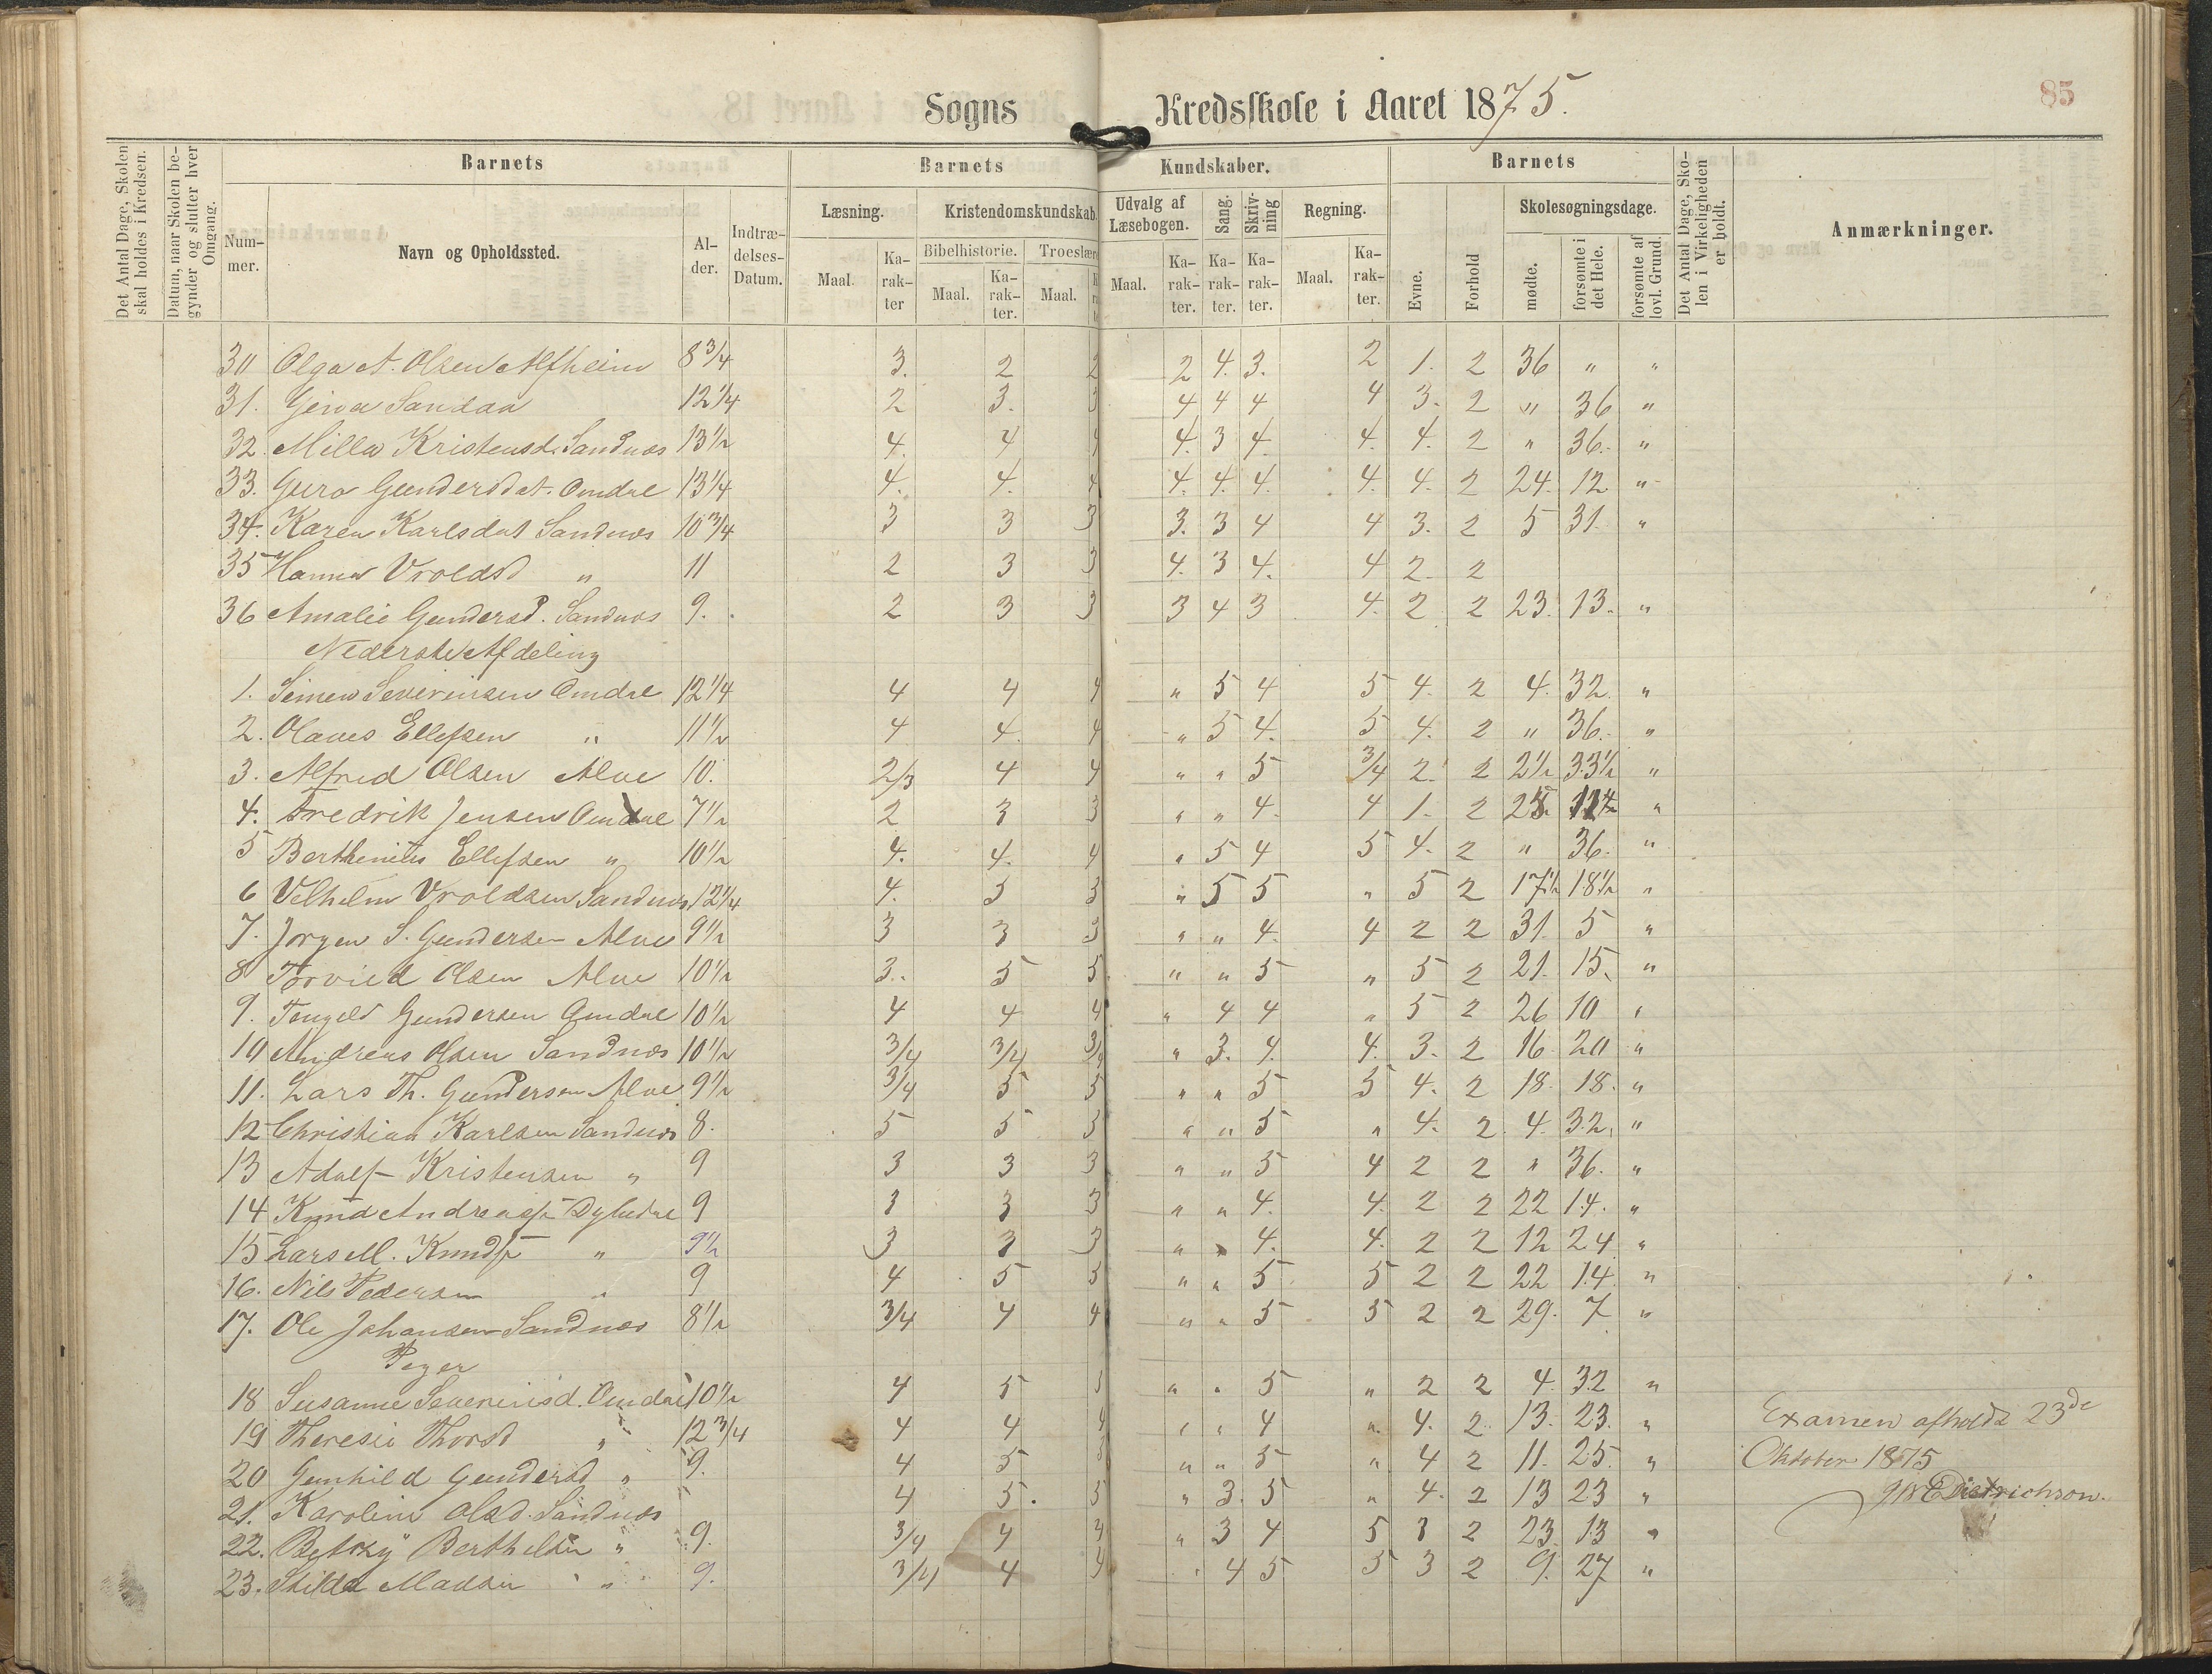 85
Sogns Kredsskole i Aaret 1875.
Det Antal Dage, Skolen skal holdes i Kredsen.
Datum, naar Skolen begynder og slutter hver Omgang.
Barnets Barnets Kundskaber. Barnets
Det Antal Dage, Skolen i Virkeligheden er holdt.
Anmærkninger.
Nummer. Navn og Opholdssted. Alder. Indtrædelses-Datum.
Læsning. Kristendomskundskab. Udvalg af Læsebogen. Sang. Skrivning Regning. Evne. Forhold Skolesøgningsdage.
Bibelhistorie. Troeslære
mødte. forsømte i det Hele. forsømte af lovl. Grund.
Maal. Karakter Maal. Karakter. Maal. Maal. Karakter. Karakter. Karakter. Maal. Karakter.
30 Olga A. Olsen Alfheim 8 3/4 3. 2 2 2 4. 3. 2 1. 2 36 " "
31. Gina Sandaa 12 1/4 2 3. 3 4 4 4 4 3. 2 " 36 "
32. Milla Kristensd. Sandnæs 13 1/2 4. 4 4 4. 3 4. 4. 4. 2 " 36. "
33. Guro Gundersdat. Omdal 13 1/4 4. 4. 4 4. 4. 4. 4. 4. 2 24. 12 "
34. Karen Karlsdat Sandnæs 10 3/4 3 3 3 3. 3 4 4 3. 2 5 31. "
35 Hanna Vroldsd " 11 2 3 3 4. 3 4. 4 2. 2
36 Amalie Gundersd. Sandnæs 9. 2 3 3 3 4 3 4. 2 2 23. 13. "
Nederste Afdeling
1. Simen Severinsen Omdal 12 1/4 4 4 4 " 5 4 5 4. 2 4. 32. "
2. Olaves Ellefsen " 11 1/2 4 4. 4 " 5 4. 5 4. 2 " 36. "
3. Alfred Olsen Alve 10. 2/3 4 4 " " 5 3/4 2. 2 2 1/2 33 1/2 "
4. Fredrik Jensen Omdal 7 1/2 2 3 3 " " 4. 4 1. 2 "
5 Ellefsen " 10 1/2 4. 4. 4 " 5 4 5 4. 2 " 36. "
6 Velhelm Vroldsen Sandnæs 12 1/4 4. 5 5 " 5 5 " 5 2 17 1/2 18 1/2 "
7. Jørgen S. Gundersen Alve 9 1/2 3 3 3 " " 4. 4 2 2 31. 5 "
8 Olsen Alve 10 1/2 3. 5 5 " " 5 " 5 2 21. 15. "
9. Gundersen Omdal 10 1/2 4 4 4 " 4 4 " 5 2 26 10 "
10 Andreas Olsen Sandnæs 10 1/2 3/4 3/4 3/4 " 3. 4. 4. 3. 2 16 20 "
11. Lars Th. Gundersen Alve 9 1/2 3/4 5 5 " " 5 5 4. 2 18. 18. "
12 Christian Karlsen Sandnæs 8. 5 5 5 " " 5 " 4. 2. 4. 32. "
13 Adolf Kristensen " 9 3 3 3 " " 5 4 2 2 " 36. "
14 Knud Andreas. 9 3 3 3 " " 4. 4. 2 2 22 14. "
15 Lars M. Knuds. " 9 1/2 3 3 3 " " 4. 4. 2 2 12 24 "
16. Nils Pedersen " 9 4 5 5 " " 5 5 2 2 22 14. "
17. Ole Johansen Sandnæs 8 1/2 3/4 4 4 " " 5 5 2 2 29. 7 "
Piger
18 Susanne Severinsd. Omdal 10 1/2 4 5 5 " " 5 " 2 2 4. 32 "
19 Theresie Thorsd " 12 3/4 4 4 4 " " 4 " 4. 2 13. 23. "
20 Gunhild Gundersd " 9. 4 5 5 " " 5 " 4 2 11. 25. "
21. Karolin Olsd. Sandnæs 4 5. 5 " 3. 5 " 4. 2 13 23 "
22. Betsey Berthelsen " 9. 3/4 4 4 " 3 4 5 3 2 23. 13 "
23. Hilda Madsen " 9. 3/4 4 4 " 4 5 5 3 2 9. 27 "
Examen afholdt 23de
Oktober 1875
Dietrichson.